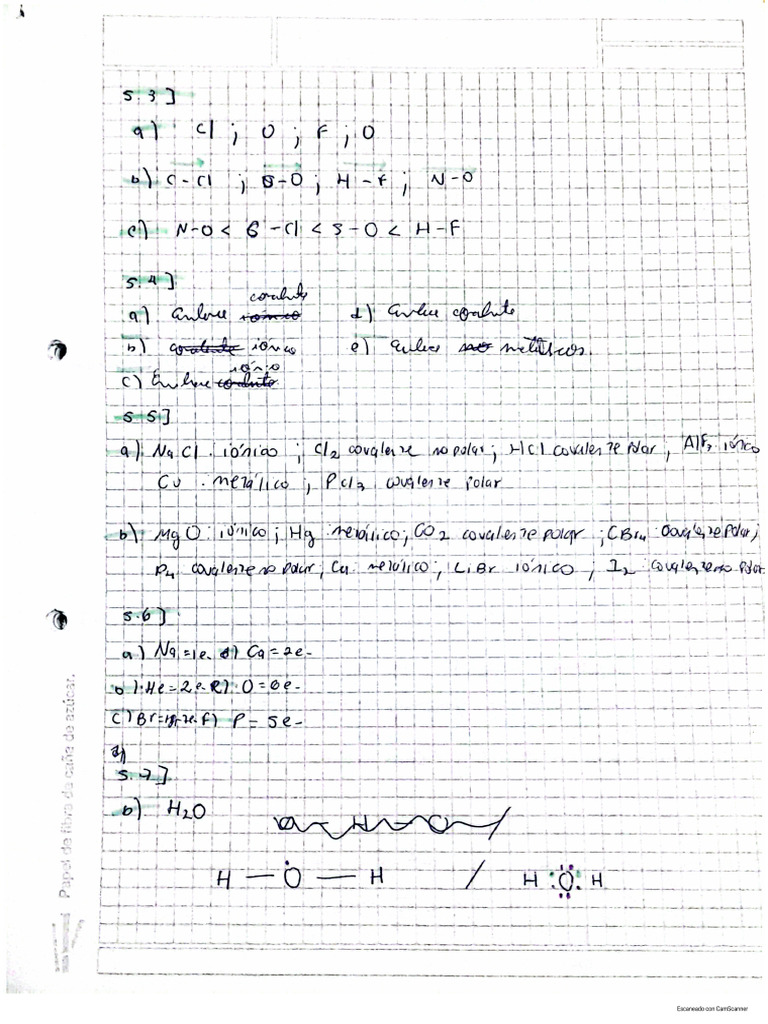 5.3]
a) Cl ; O ; F ; O
b) C-Cl ; S-O ; H-F ; N-O
c) N-O < C-Cl < S-O < H-F
5.4]
a) Enlace covalente
d) Enlace covalente
b) iónico
e) Enlace metálicos.
c) Enlace iónico
5.5]
a) NaCl: iónico ; Cl2 covalente no polar; HCl covalente polar, AlF3 iónico
Cu: metálico ; PCl3 covalente polar
b) MgO: iónico ; Hg metálico, CO2 covalente polar ; CBr4 covalente polar;
P4 covalente no polar, Cu metálico, LiBr iónico ; I2: covalente no polar
5.6]
a) Na=1e- d) Ca=2e-
b) He=2e- e) O=6e-
c) Br= f) P=5e-
5.7]
b) H2O
H — O — H / H :O: H
Papel de fibra de caña de azúcar.
Escaneado con CamScanner